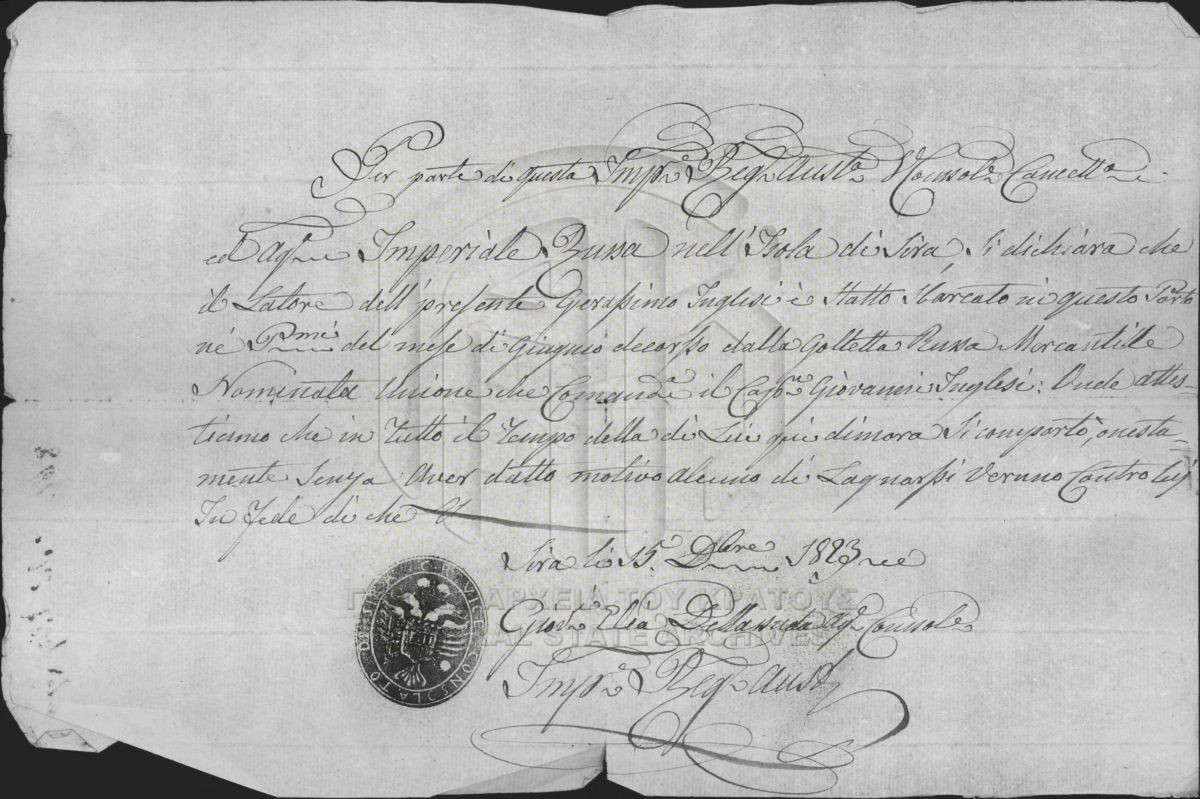 Per parte di questa Imp.e Reg.e Aust.a V Consol.e Cancell.a
ed Ag.e Imperiale Russa nell' Isola di Sira, Si dichiara che
il Latore dell' presente Gerassimo Inglesi è Statto Sbarcato in questo Porto
né P.mi del mese di Giugnio decorso dalla Goltetta Russa Mercantille
Nominata Unione che Comanda il Cap.n Giovanni Inglesi: Onde attes-
tiamo che in Tutto il Tempo della di Lui qui dimora Si comportò, onesta-
mente Senza Aver datto motivo alcuno di Lagnarsi Veruno Contro Lui
In Fede di che
Sira li 15. Dbre 1823
Giov. Elia Dellasuda Ag.e Console
Imp.e Reg.e Aust.
CES. REG. VICE CONSOLATO DI SIRA
ΓΕΝΙΚΑ ΑΡΧΕΙΑ ΤΟΥ ΚΡΑΤΟΥΣ
GENERAL STATE ARCHIVES